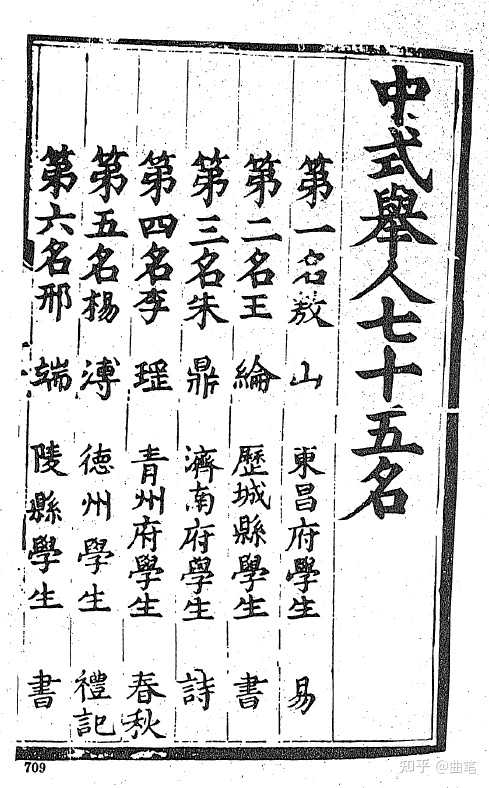 中式舉人七十五名
第一名敖山 東昌府學生 易
第二名王綸 歷城縣學生 書
第三名朱鼎 濟南府學生 詩
第四名李瑆 青州府學生 春秋
第五名楊溥 德州學生 禮記
第六名邢端 陵縣學生 書
709
知乎 @曲笔